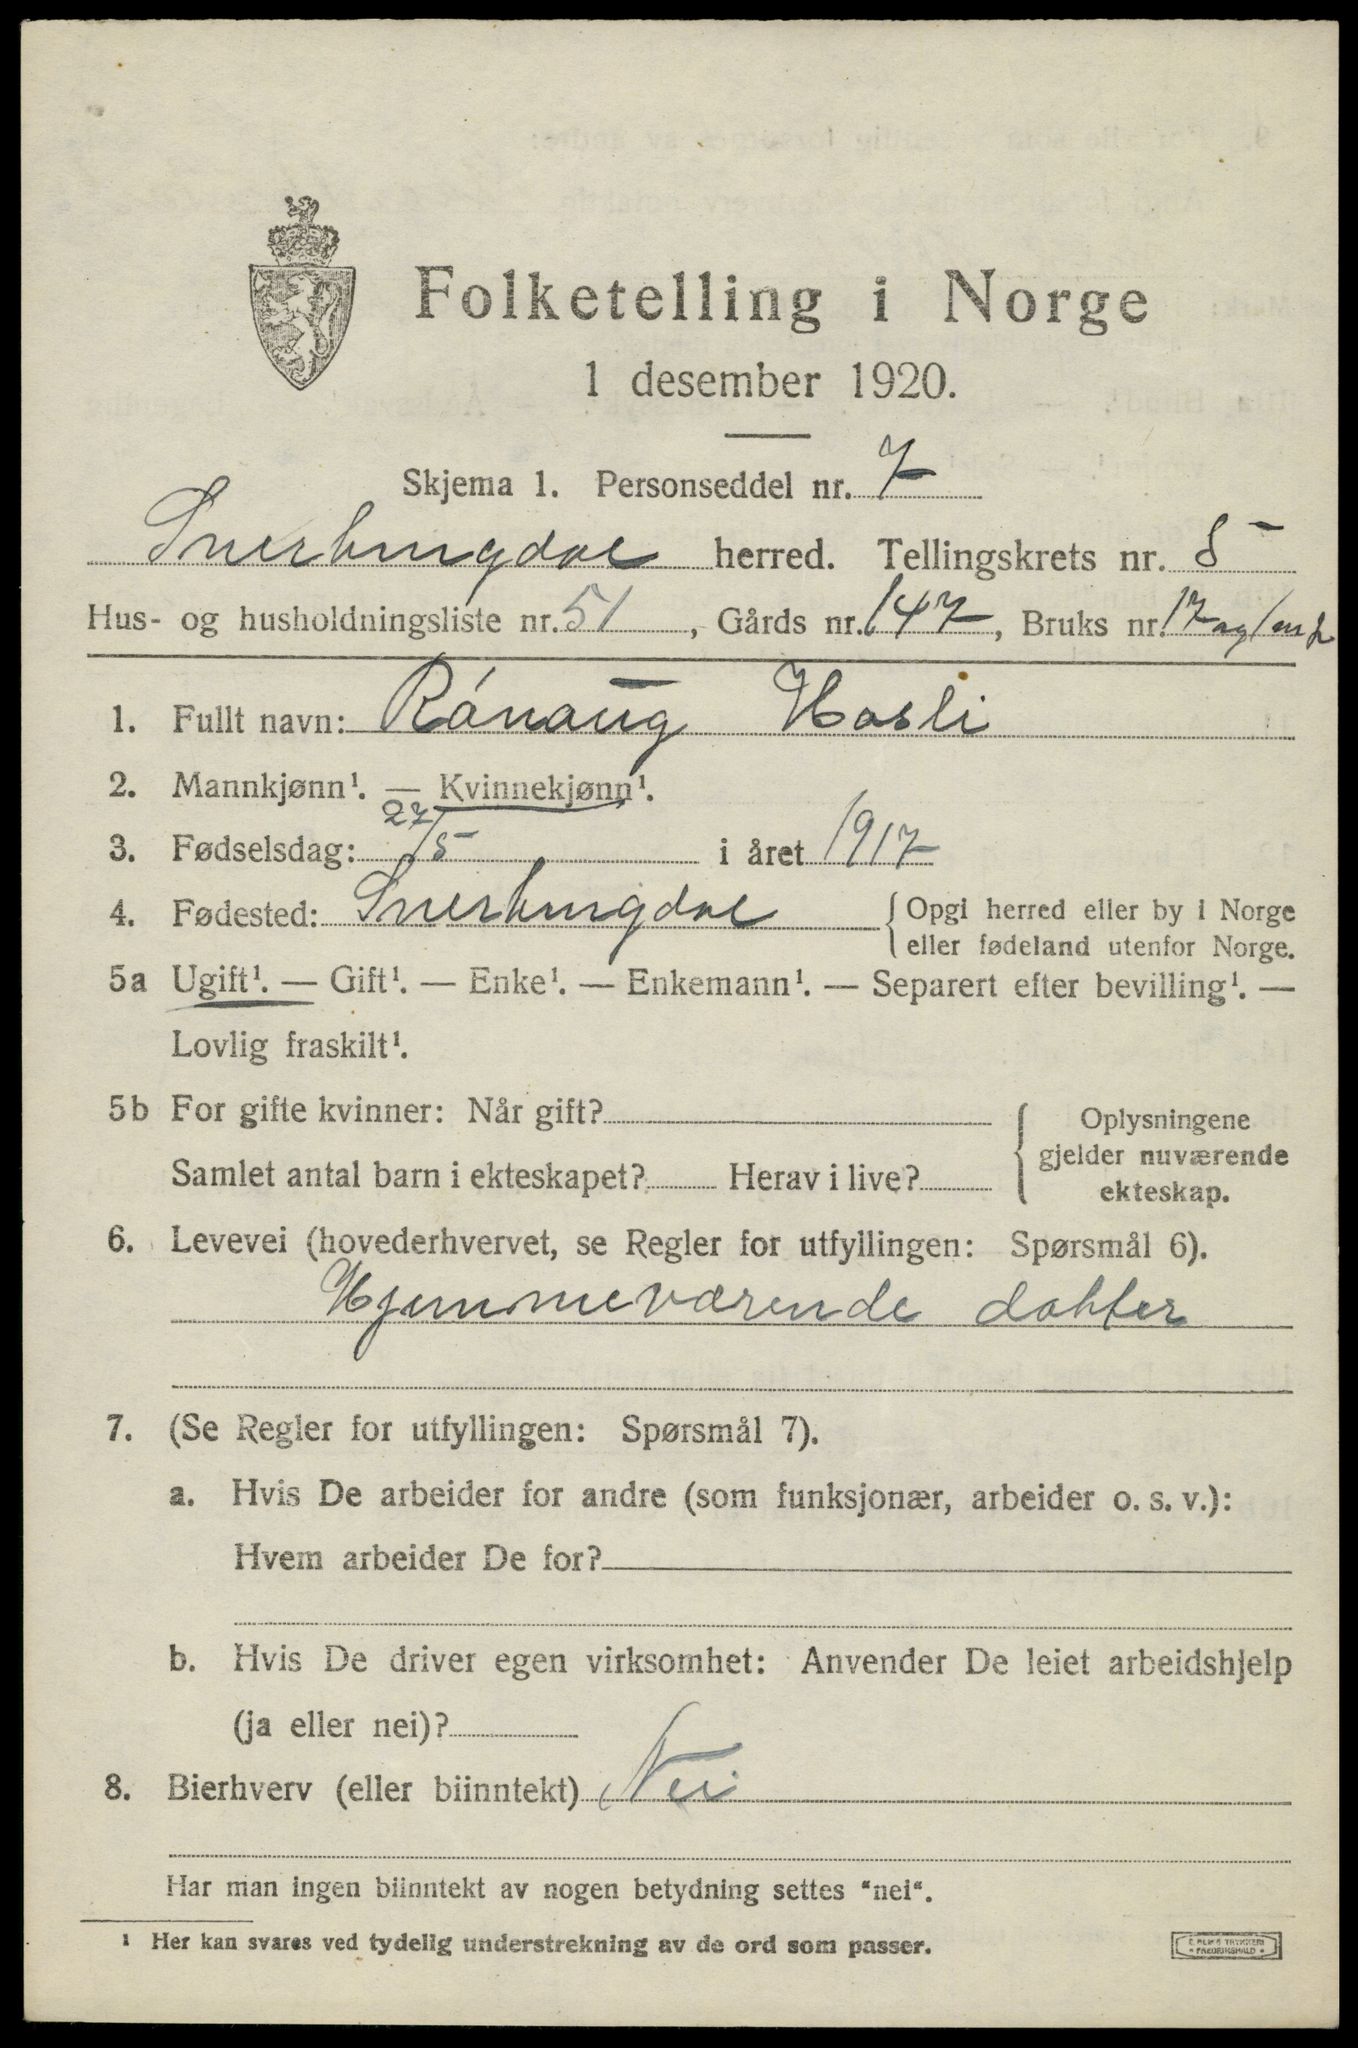 Folketelling i Norge
1 desember 1920.
Skjema 1. Personseddel nr. 7
Snertingdal herred. Tellingskrets nr. 5
Hus- og husholdningsliste nr. 51, Gårds nr. 147, Bruks nr. 17 og
1. Fullt navn: Rónaug Hasli
2. Mannkjønn¹. — Kvinnekjønn¹.
3. Fødselsdag: 27/5 i året 1917
4. Fødested: Snertingdal { Opgi herred eller by i Norge
eller fødeland utenfor Norge.
5a Ugift¹. — Gift¹. — Enke¹. — Enkemann¹. — Separert efter bevilling¹. —
Lovlig fraskilt¹.
5b For gifte kvinner: Når gift?
Samlet antal barn i ekteskapet? Herav i live?
{ Oplysningene
gjelder nuværende
ekteskap.
6. Levevei (hovederhvervet, se Regler for utfyllingen: Spørsmål 6).
Hjemmeværende dotter
7. (Se Regler for utfyllingen: Spørsmål 7).
a. Hvis De arbeider for andre (som funksjonær, arbeider o. s. v.):
Hvem arbeider De for?
b. Hvis De driver egen virksomhet: Anvender De leiet arbeidshjelp
(ja eller nei)?
8. Bierhverv (eller biinntekt) Nei
Har man ingen biinntekt av nogen betydning settes "nei".
¹ Her kan svares ved tydelig understrekning av de ord som passer.